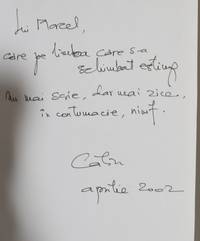 lui Marcel,
care pe limba care s-a
schimbat
nu mai scrie, dar mai zice,
in contumacie, nimf.
Catin
aprilie 2002